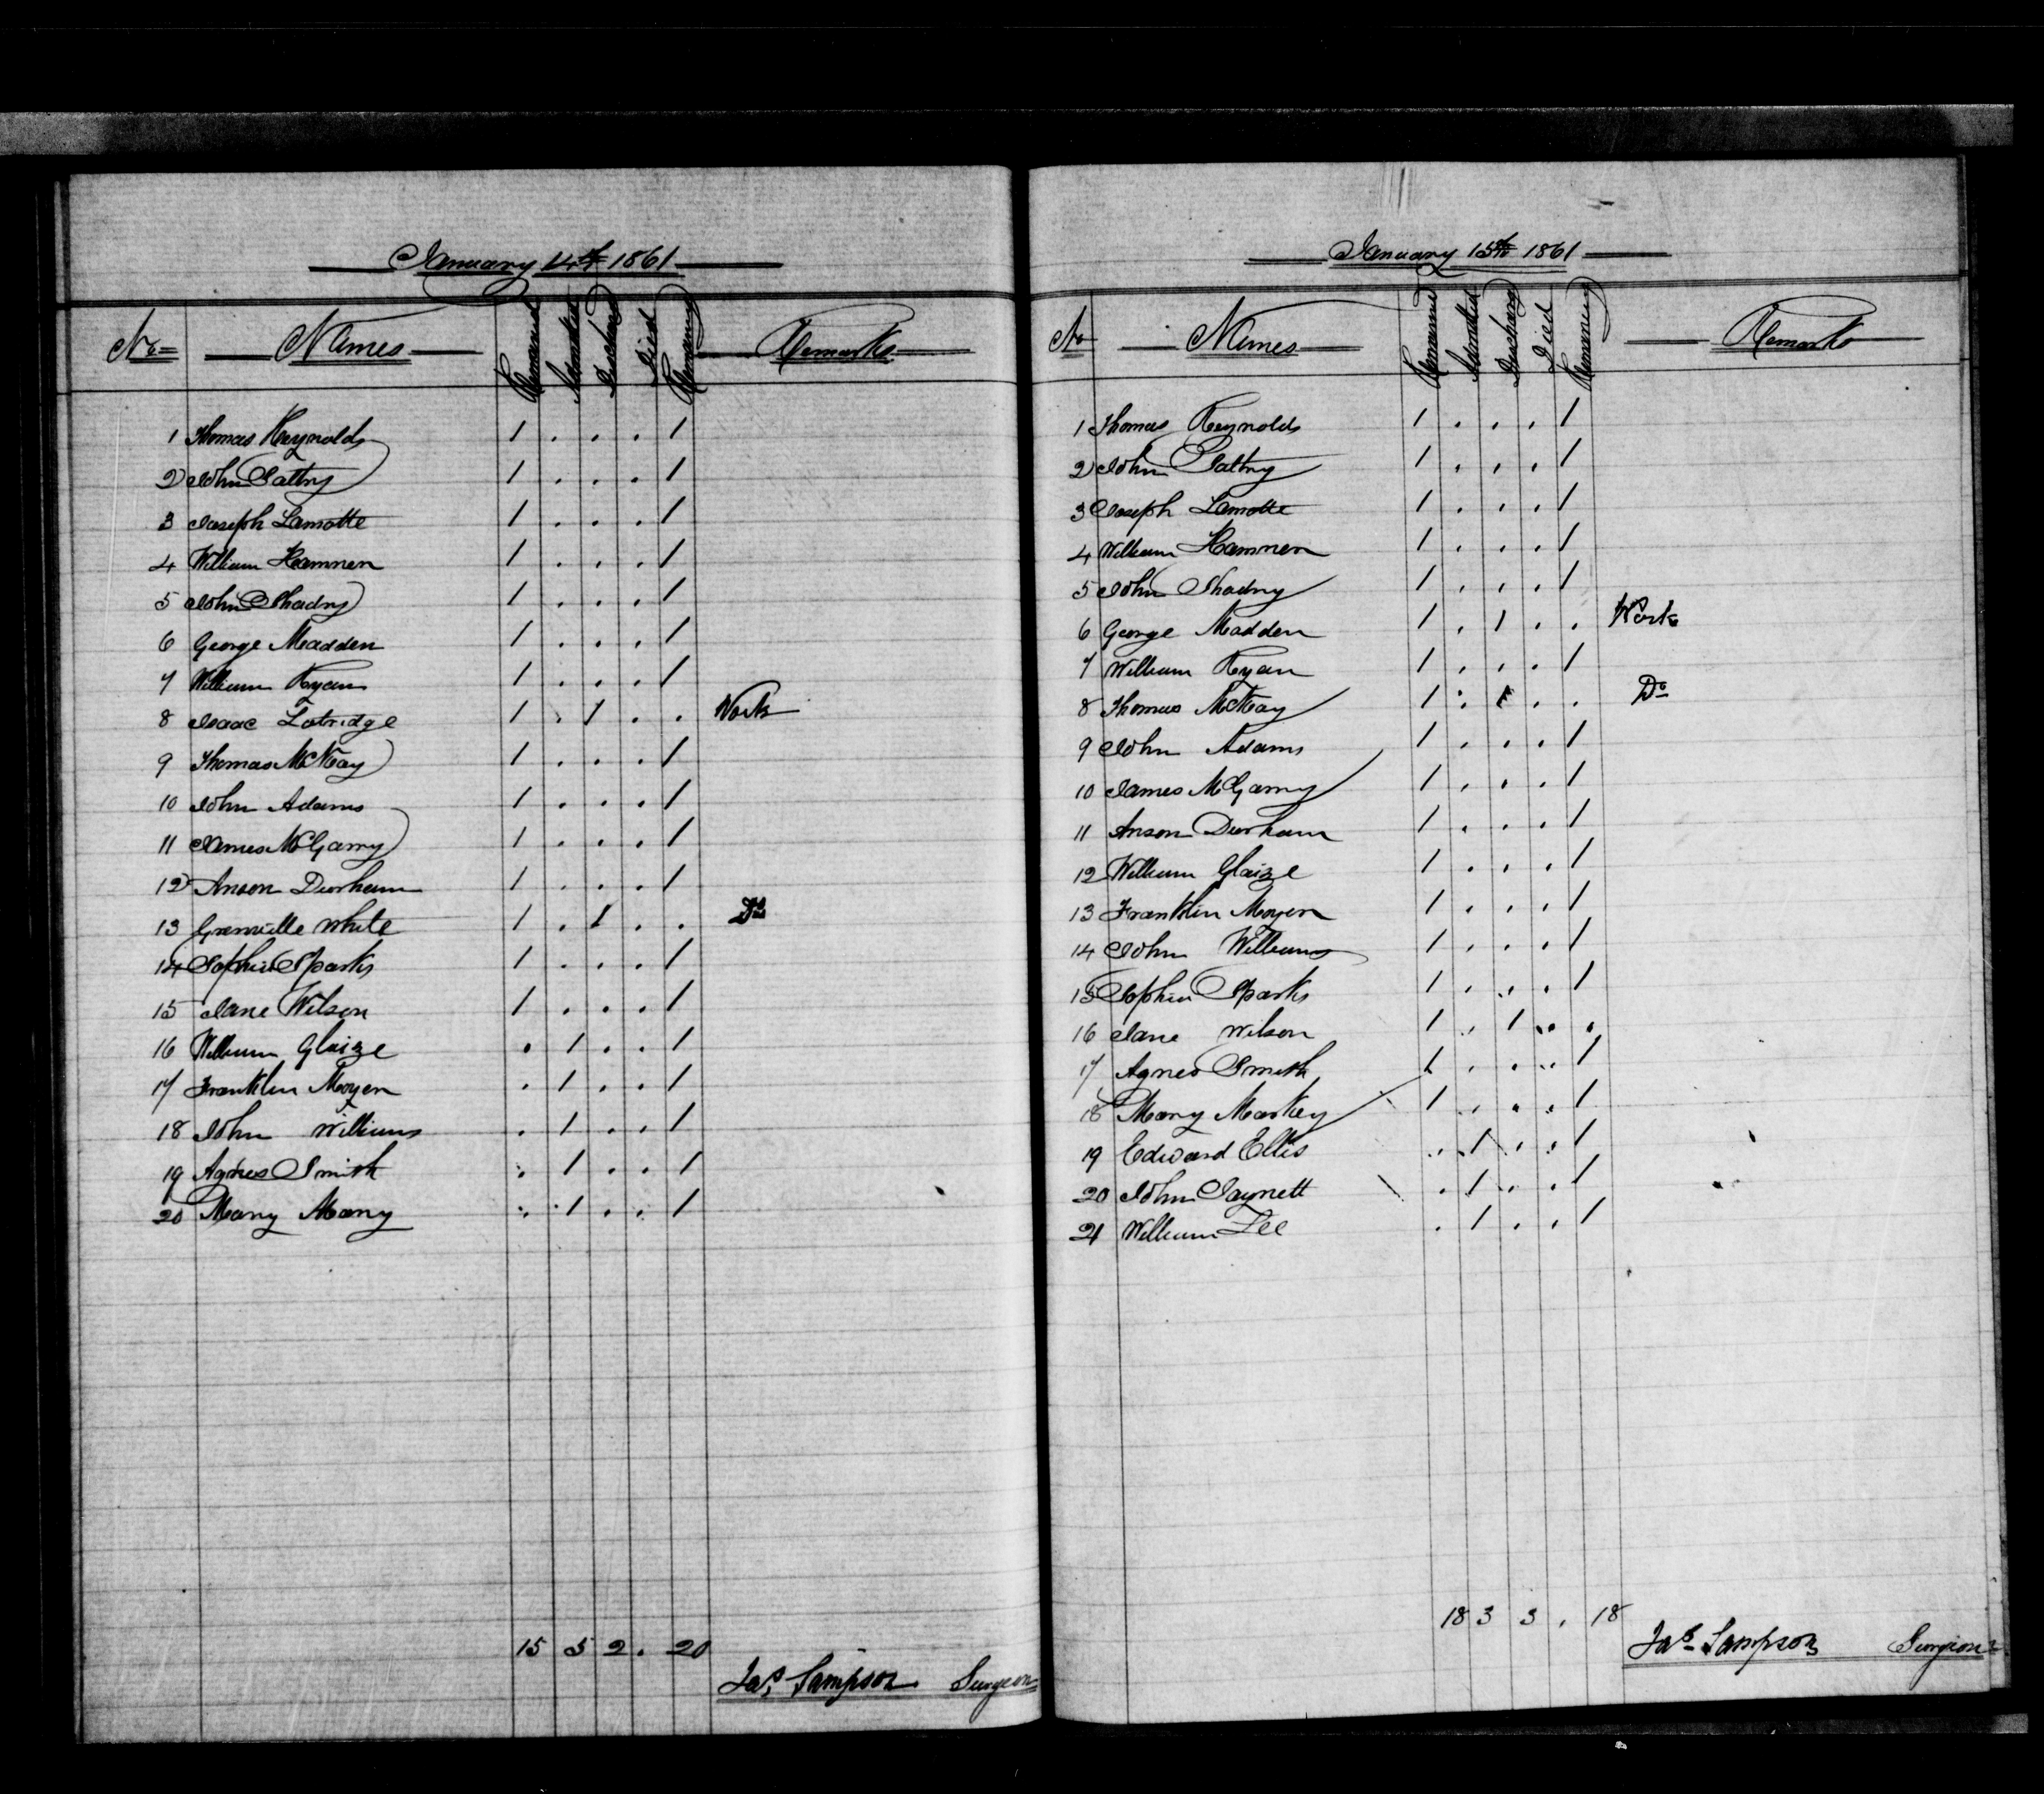 January 14th 1861
No Names Remained Admitted Discharg Died Remaining Remarks
1 Thomas Reynolds 1 . . . 1
2 John Slattry 1 . . . 1
3 Joseph Lamotte 1 . . . 1
4 William Hamnen 1 . . . 1
5 John Shadry 1 . . . 1
6 George Madden 1 . . . 1
7 William Ryan 1 . . . 1
8 Isaac Lotridge 1 . 1 . . Work
9 Thomas McKay 1 . . . 1
10 John Adams 1 . . . 1
11 James McGarry 1 . . . 1
12 Anson Durham 1 . . . 1
13 Grenville White 1 . 1 . . Do
14 Sophia Sparks 1 . . . 1
15 Jane Wilson 1 . . . 1
16 William Glaize . 1 . . 1
17 Franklin Moyen . 1 . . 1
18 John Williams . 1 . . 1
19 Agnes Smith . 1 . . 1
20 Mary Many . 1 . . 1
15 5 2 . 20
Jas Sampson Surgeon
January 15th 1861
No Names Remained Admitted Discharg Died Remaining Remarks
1 Thomas Reynolds 1 . . . 1
2 John Slattry 1 . . . 1
3 Joseph Lamotte 1 . . . 1
4 William Hamnen 1 . . . 1
5 John Shadry 1 . . . 1
6 George Madden 1 . 1 . . Work
7 William Ryan 1 . . . 1
8 Thomas McKay 1 . 1 . . Do
9 John Adams 1 . . . 1
10 James McGarry 1 . . . 1
11 Anson Durham 1 . . . 1
12 William Glaize 1 . . . 1
13 Franklin Moyen 1 . . . 1
14 John Williams 1 . . . 1
15 Sophia Sparks 1 . . . 1
16 Jane Wilson 1 . 1 . .
17 Agnes Smith 1 . . . 1
18 Mary Markey 1 . . . 1
19 Edward Ellis . 1 . . 1
20 John Jaynett . 1 . . 1
21 William Lee . 1 . . 1
18 3 3 . 18
Jas Sampson Surgeon